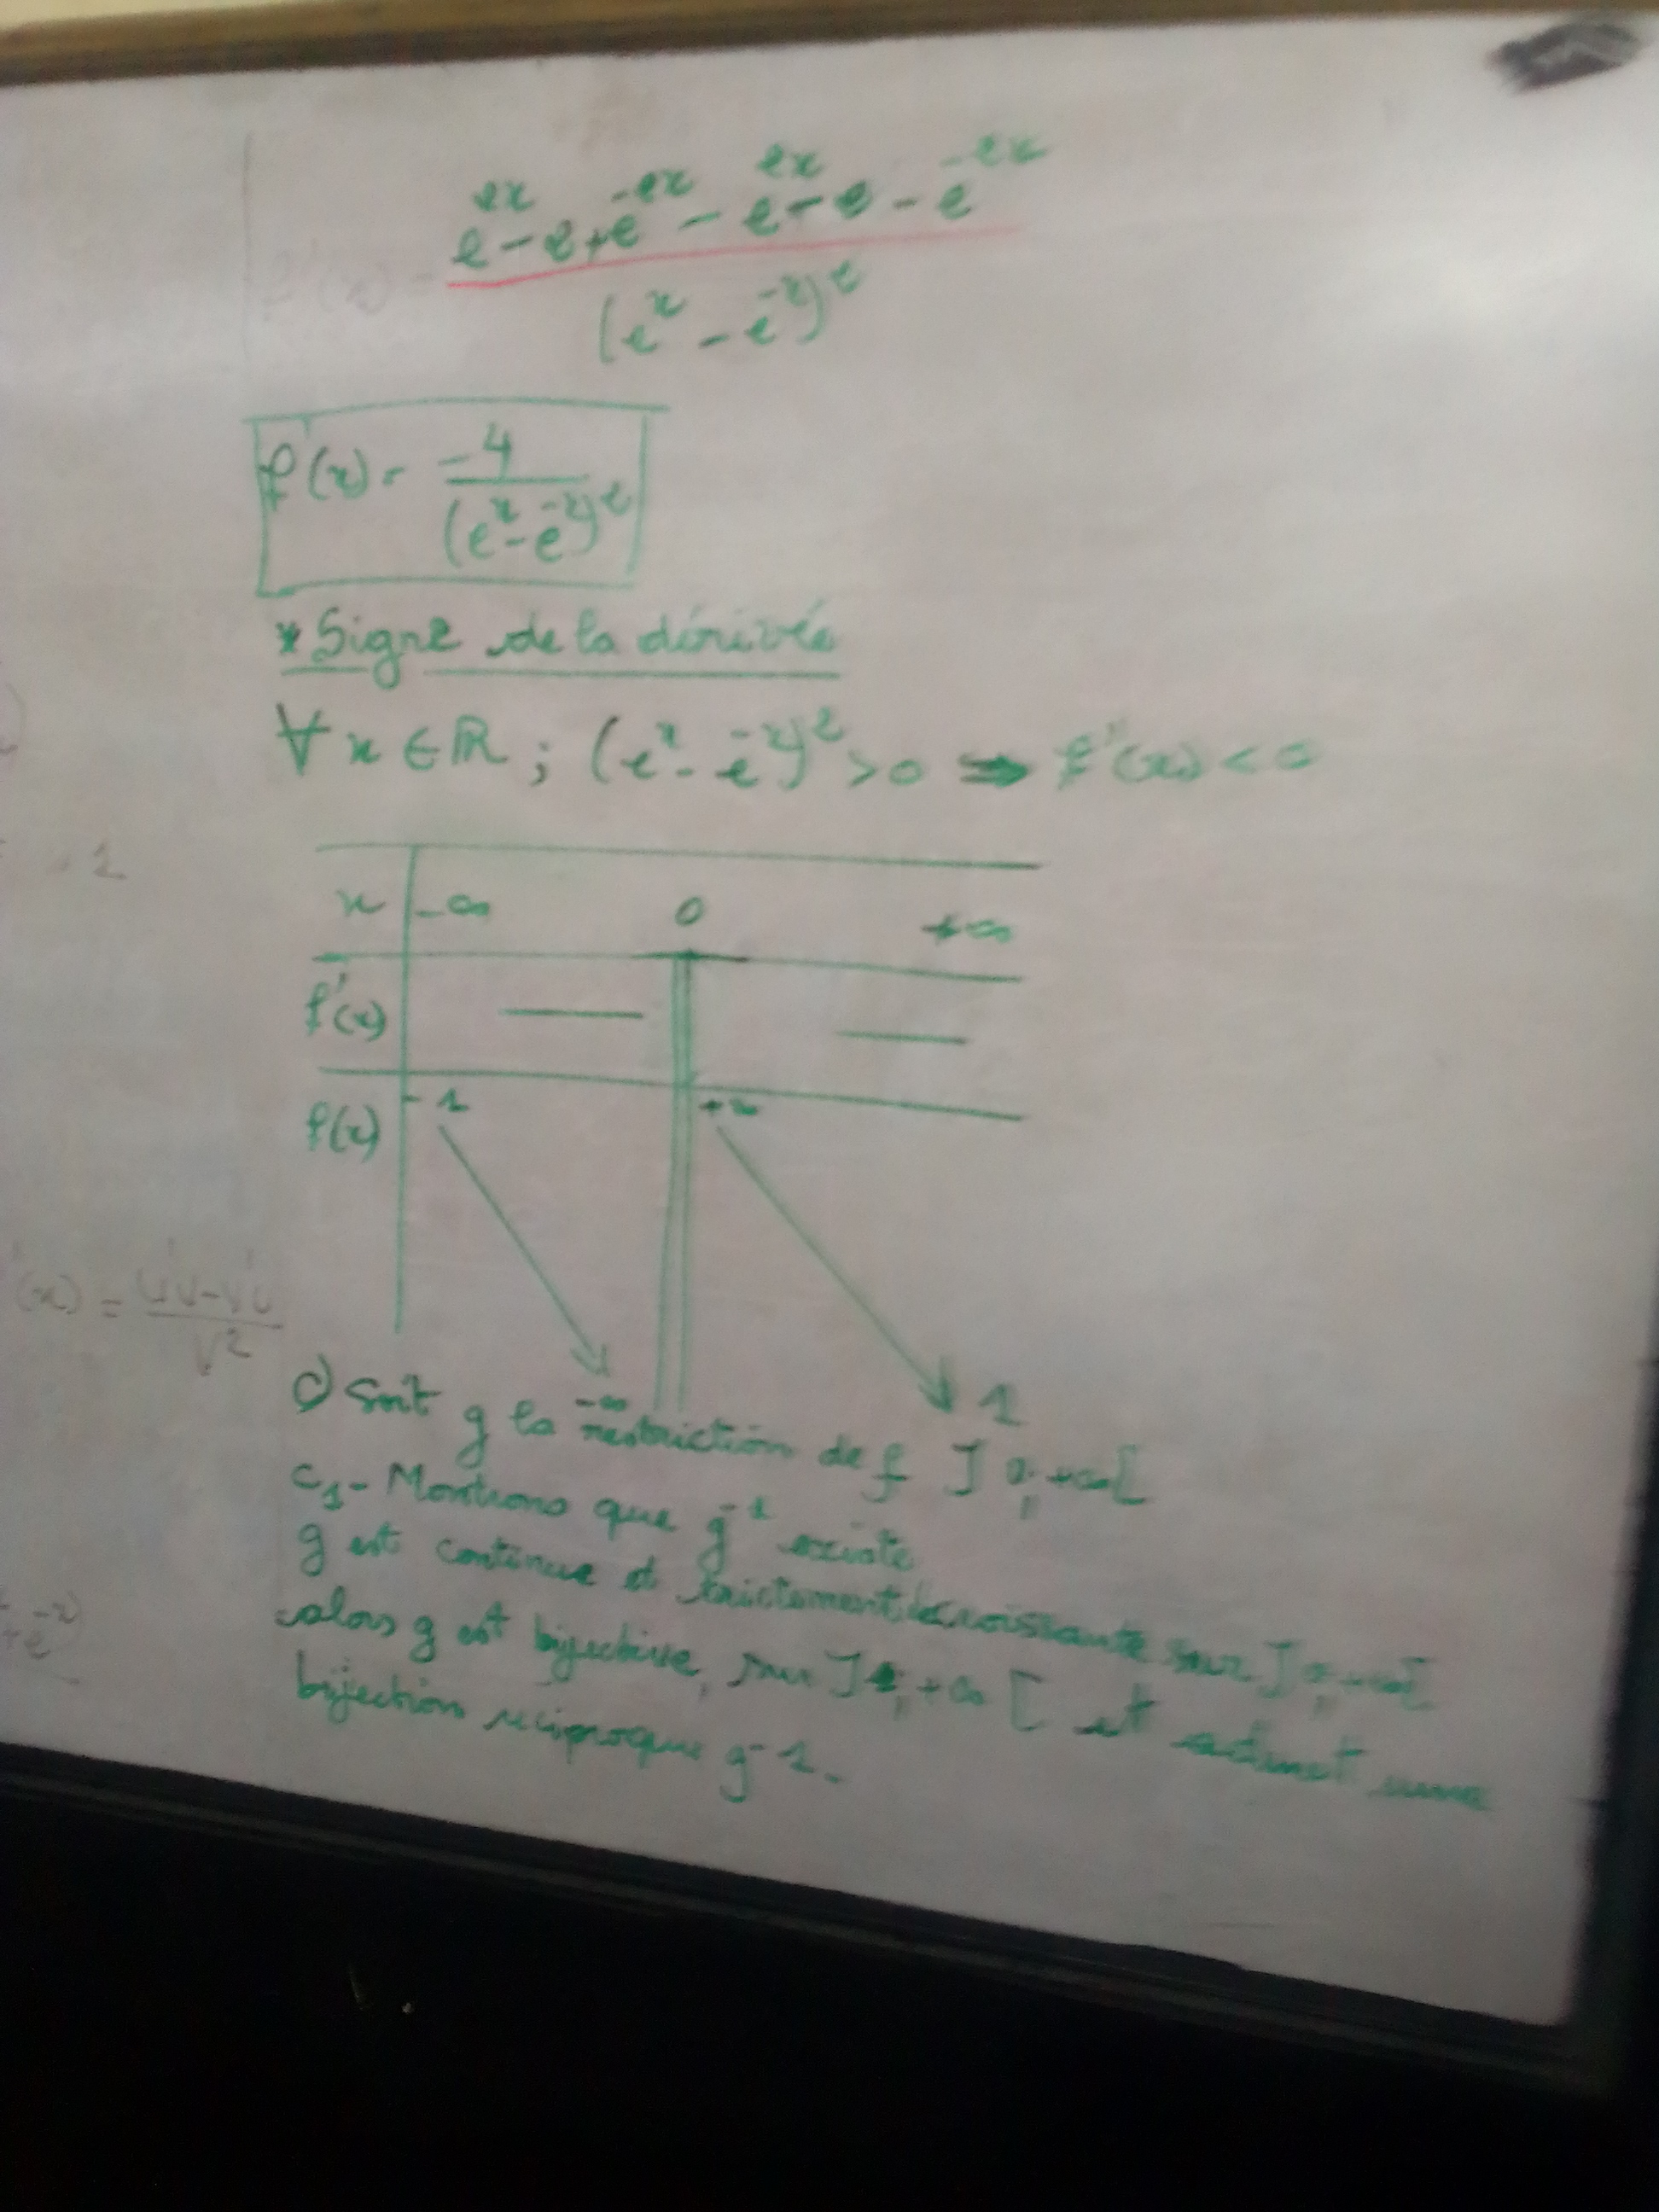 e^{2x} - 2 + e^{-2x} - e^{2x} - 2 - e^{-2x}
(e^x - e^{-x})^2
f'(x) = -4 / (e^x - e^{-x})^2
* Signe de la dérivée
∀ x ∈ ℝ ; (e^x - e^{-x})^2 > 0 ⇒ f'(x) < 0
x -∞ 0 +∞
f'(x) — —
f(x) -1 +∞
-∞ 1
c) Soit g la restriction de f ]0; +∞[
c₁- Montrons que g^{-1} existe
g est continue et strictement décroissante sur ]0; +∞[
alors g est bijective, sur ]1; +∞[ et admet une
bijection réciproque g^{-1}.
1
(x) = (u'v - v'u) / v^2
+e^{-x})